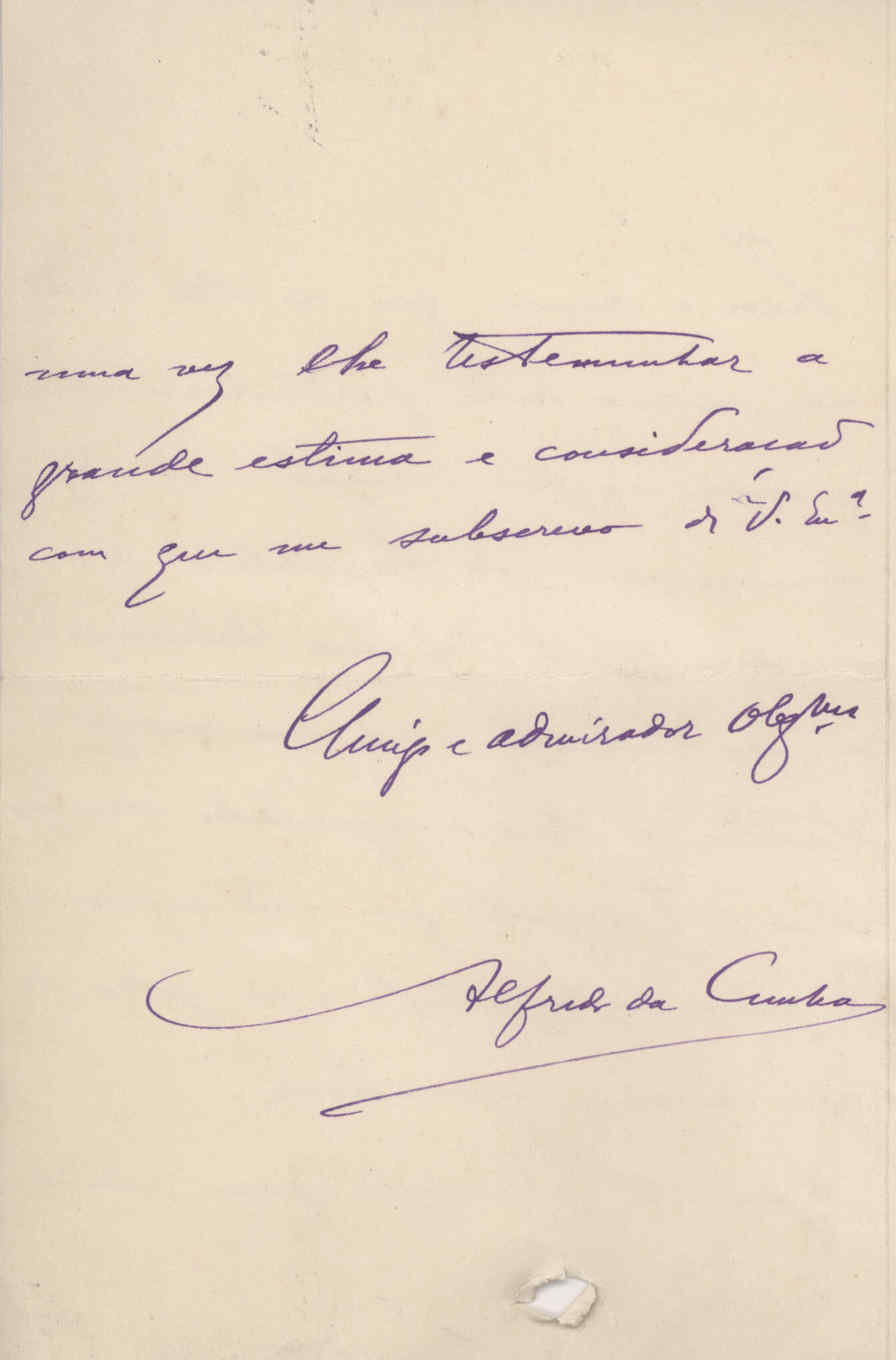 uma vez lhe testemunhar a
grande estima e consideracaõ
com que me subscrevo de V. Exª
Amigo e admirador Obgmo
Alfredo da Cunha